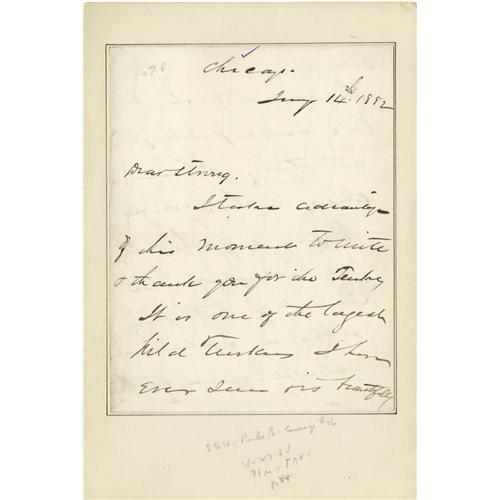 Chicago.
Jany 14th 1892
Dear Strong.
I take advantage
of this moment to write
& thank you for the Turkey
It is one of the largest
Wild Turkeys I have
Ever seen & is beautifully
4-27-34